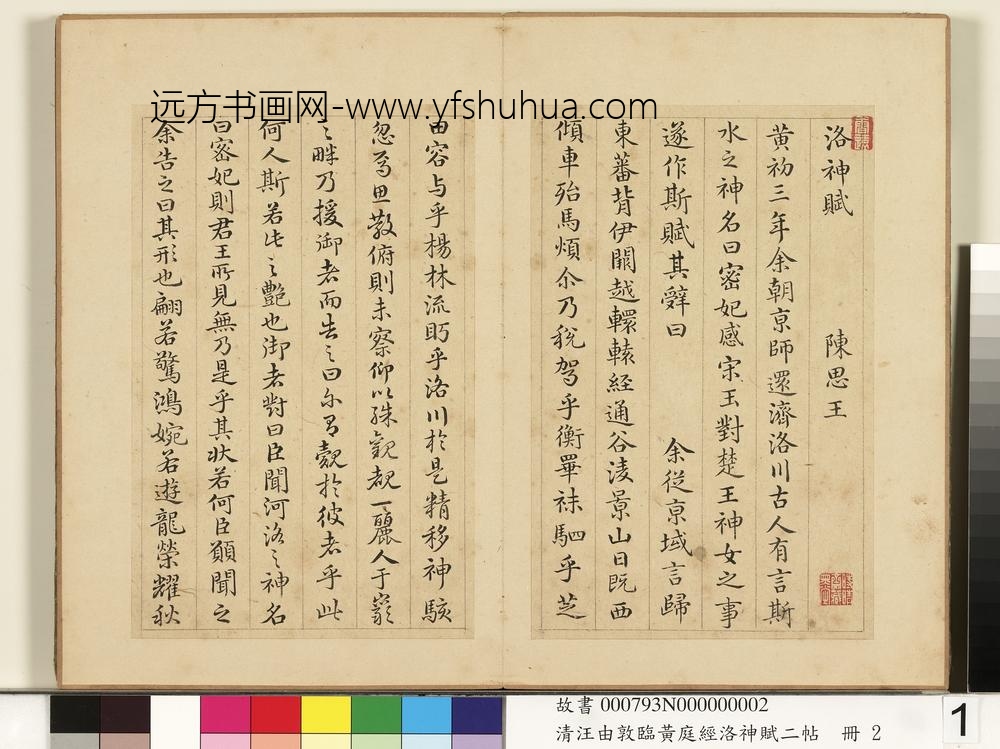 远方书画网-www.yfshuhua.com
洛神賦 陳思王
黄初三年余朝京師還濟洛川古人有言斯
水之神名曰密妃感宋玉對楚王神女之事
遂作斯賦其辭曰 余從京域言歸
東蕃背伊闕越轘轅経通谷陵景山日既西
傾車殆馬煩尒乃税駕乎蘅睪秣駟乎芝
田容与乎楊林流眄乎洛川於是精移神駭
忽焉思散俯則未察仰以殊觀覩一麗人于巖
之畔乃援御者而告之曰尔有覿於彼者乎此
何人斯若此之艷也御者對曰臣聞河洛之神名
曰密妃則君王所見無乃是乎其状若何臣願聞之
余告之曰其形也翩若驚鴻婉若遊龍榮耀秋
故書 000793N000000002
清汪由敦臨黃庭經洛神賦二帖 冊 2
1